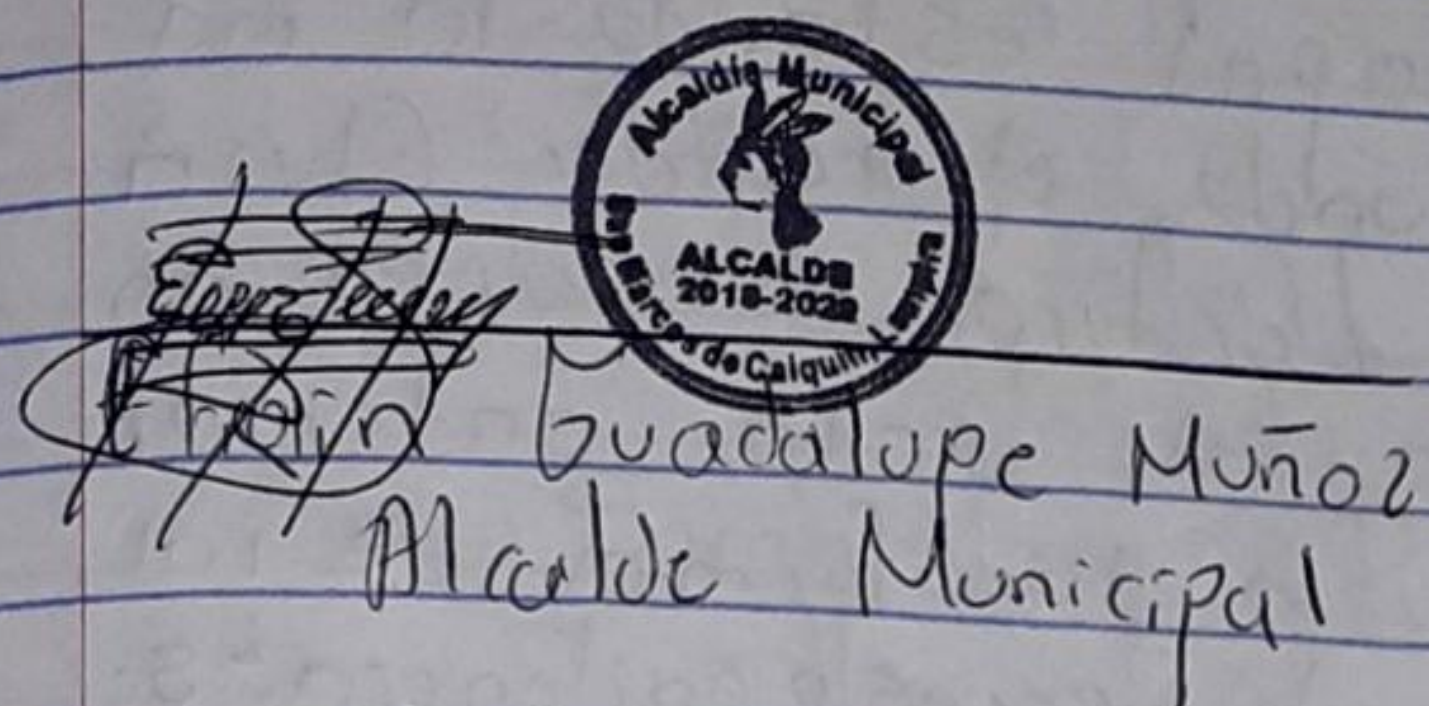 Alcaldía Municipal
ALCALDE
2018-2022
San Marcos de Caiquin
Guadalupe Muñoz
Alcalde Municipal